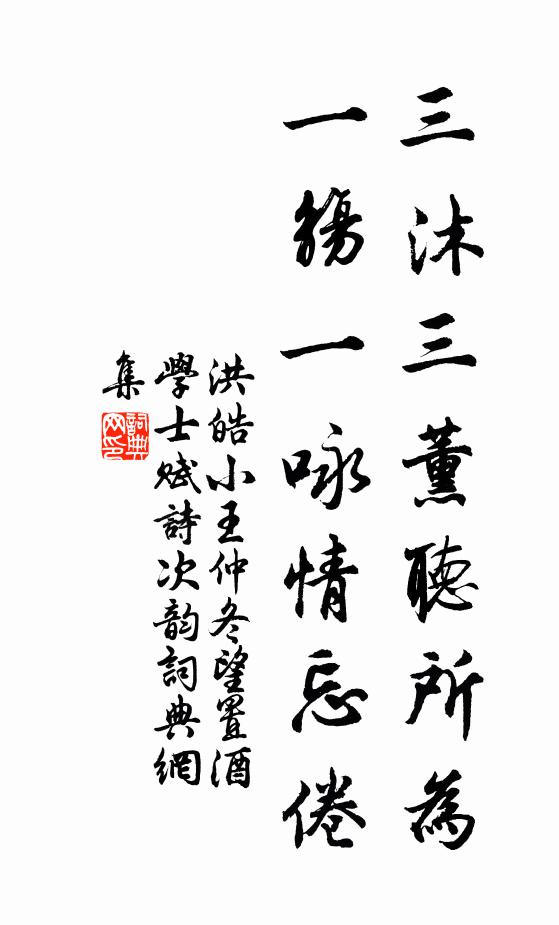 三沐三薰聽所為
一觴一咏情忘倦
洪皓小王仲冬望置酒
學士赋詩次韵詞典網
集
詞典网印